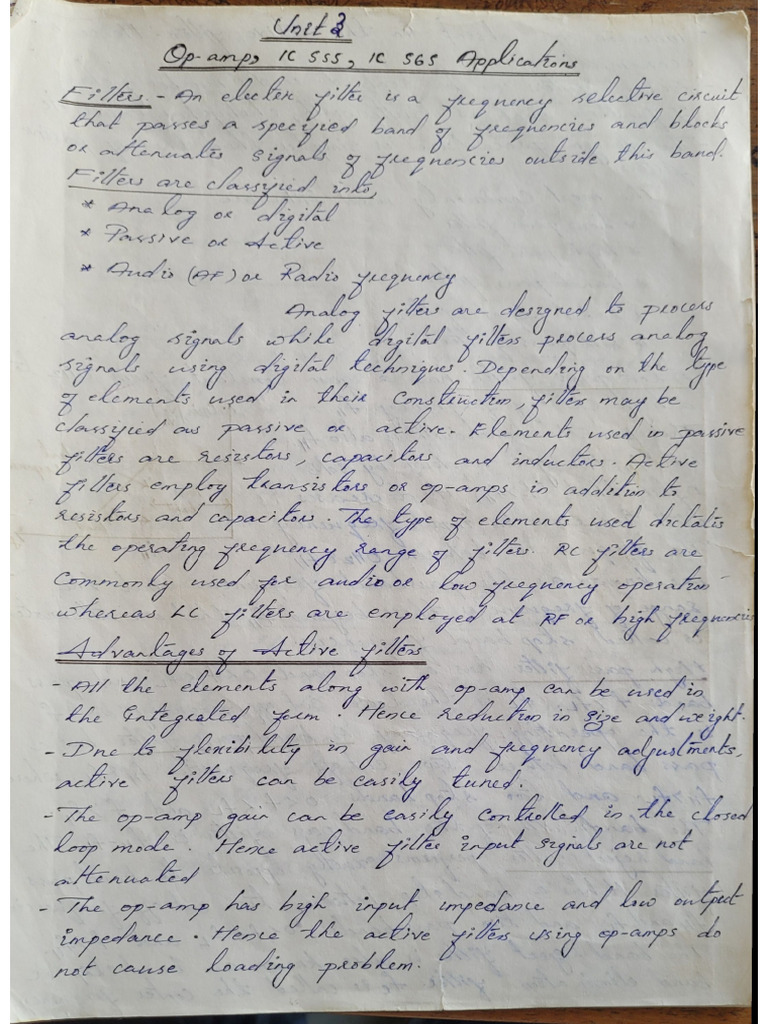 Unit 3
Op-amp, IC 555, IC 565 Applications
Filters - An electric filter is a frequency selective circuit
that passes a specified band of frequencies and blocks
or attenuates signals of frequencies outside this band.
Filters are classified into,
* Analog or digital
* Passive or Active
* Audio (AF) or Radio frequency
Analog filters are designed to process
analog signals while digital filters process analog
signals using digital techniques. Depending on the type
of elements used in their Construction, filters may be
classified as passive or active. Elements used in passive
filters are resistors, capacitors and inductors. Active
filters employ transistors or op-amps in addition to
resistors and capacitors. The type of elements used dictates
the operating frequency range of filters. RC filters are
Commonly used for audio or low frequency operation
whereas LC filters are employed at RF or high frequencies
Advantages of Active filters
- All the elements along with op-amp can be used in
the Integrated form. Hence reduction in size and weight.
- Due to flexibility in gain and frequency adjustments,
active filters can be easily tuned.
- The op-amp gain can be easily controlled in the closed
loop mode. Hence active filter input signals are not
attenuated
- The op-amp has high input impedance and low output
impedance. Hence the active filters using op-amps do
not cause loading problem.